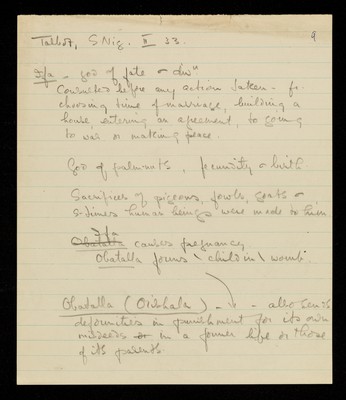 Talbot, S. Nig. II 33. 9
Ifa - god of fate & divn
Consulted before any action taken - fr.
choosing time of marriage, building a
house, entering an agreement, to going
to war or making peace.
God of palm-nuts, fecundity & birth
Sacrifices of pigeons, fowls, goats &
s-times human beings were made to him
Obatalla Ifa causes pregnancy
Obatalla forms \ child in \ womb.
Obatalla (Orishala) - - also sends
deformities in punishment for its own
misdeeds or in a former life or those
of its parents.